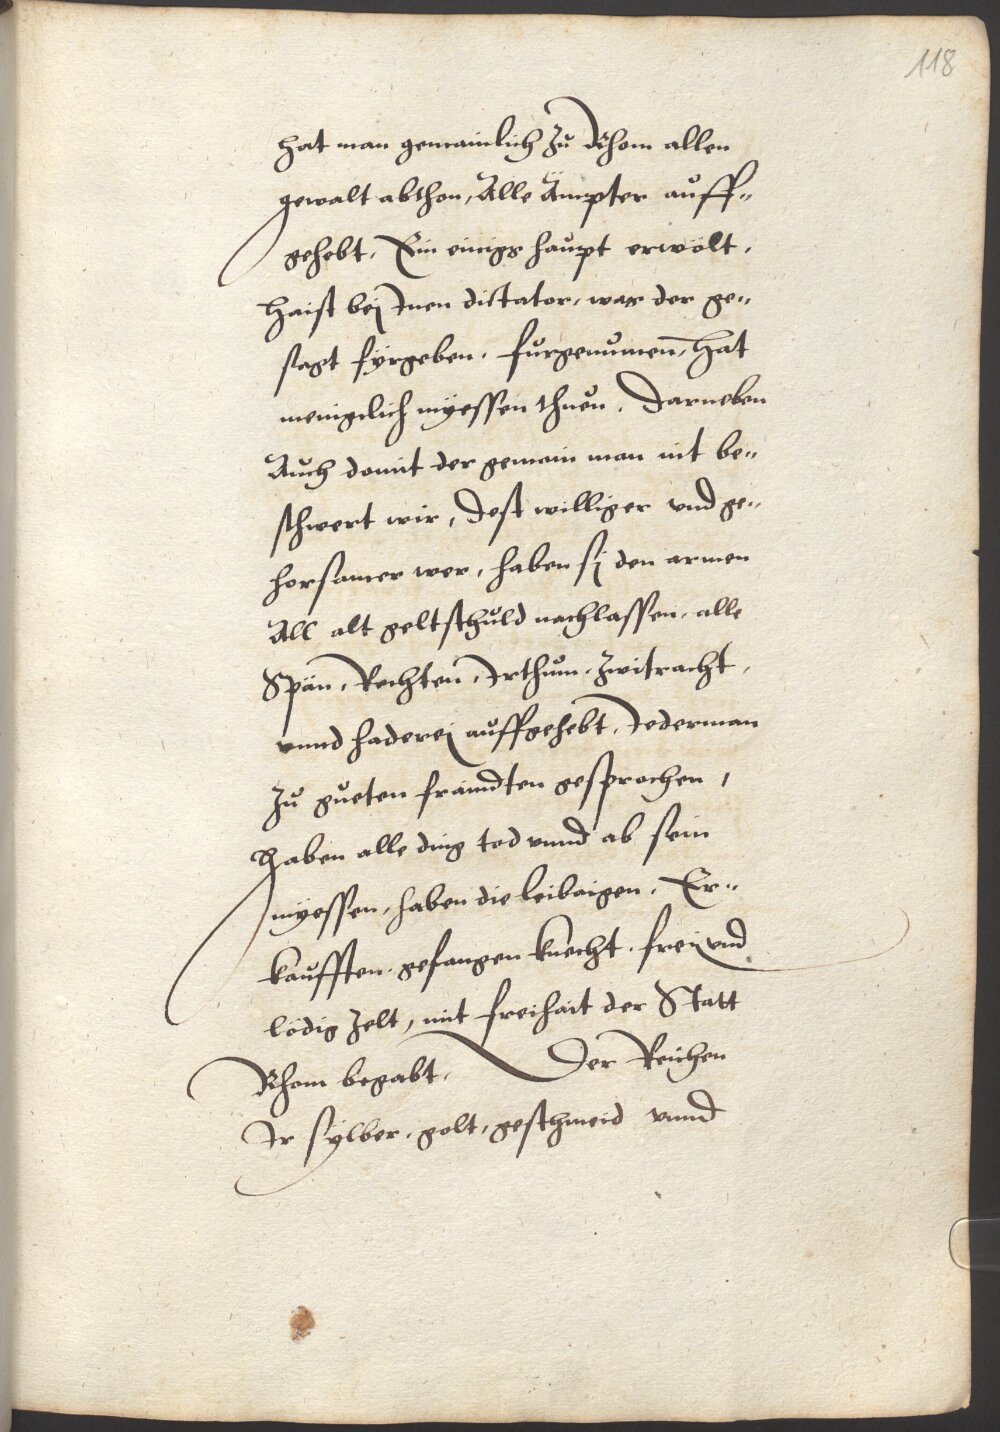 118
hat man gemainlich zů Rhom allen
gewalt abthon, Alle Ämpter auff-
gehebt, Ein einigs haupt erwölt,
haist bei Inen dictator, was der ge-
sagt fürgeben, furgenumen, hat
menigclich myessen thuen. Darneben
Auch domit der gemain man nit be-
schwert wir, Dest williger vnd ge-
horsamer wer, haben si den armen
All alt geltschuld nachlassen, alle
Spän, Rechten, Irthum, Zwitracht,
vnnd haderei auffgehebt, Jederman
Zů gueten fraindten gesprochen,
haben alle ding tod vnnd ab sein
myessen, haben die leibaigen, Er-
kaufften, gefangen knecht, frei vnd
ledig zelt, mit freihait der Statt
Rhom begabt. Der Reichen
Ir sylber, golt, geschmeid vnnd